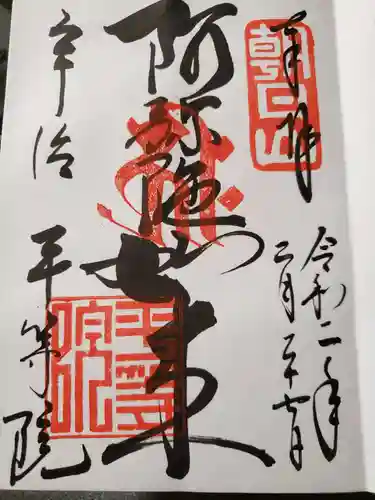 奉拝
朝日山
令和二年
二月二十七日
阿弥陀如来
宇治
平等院
平等院